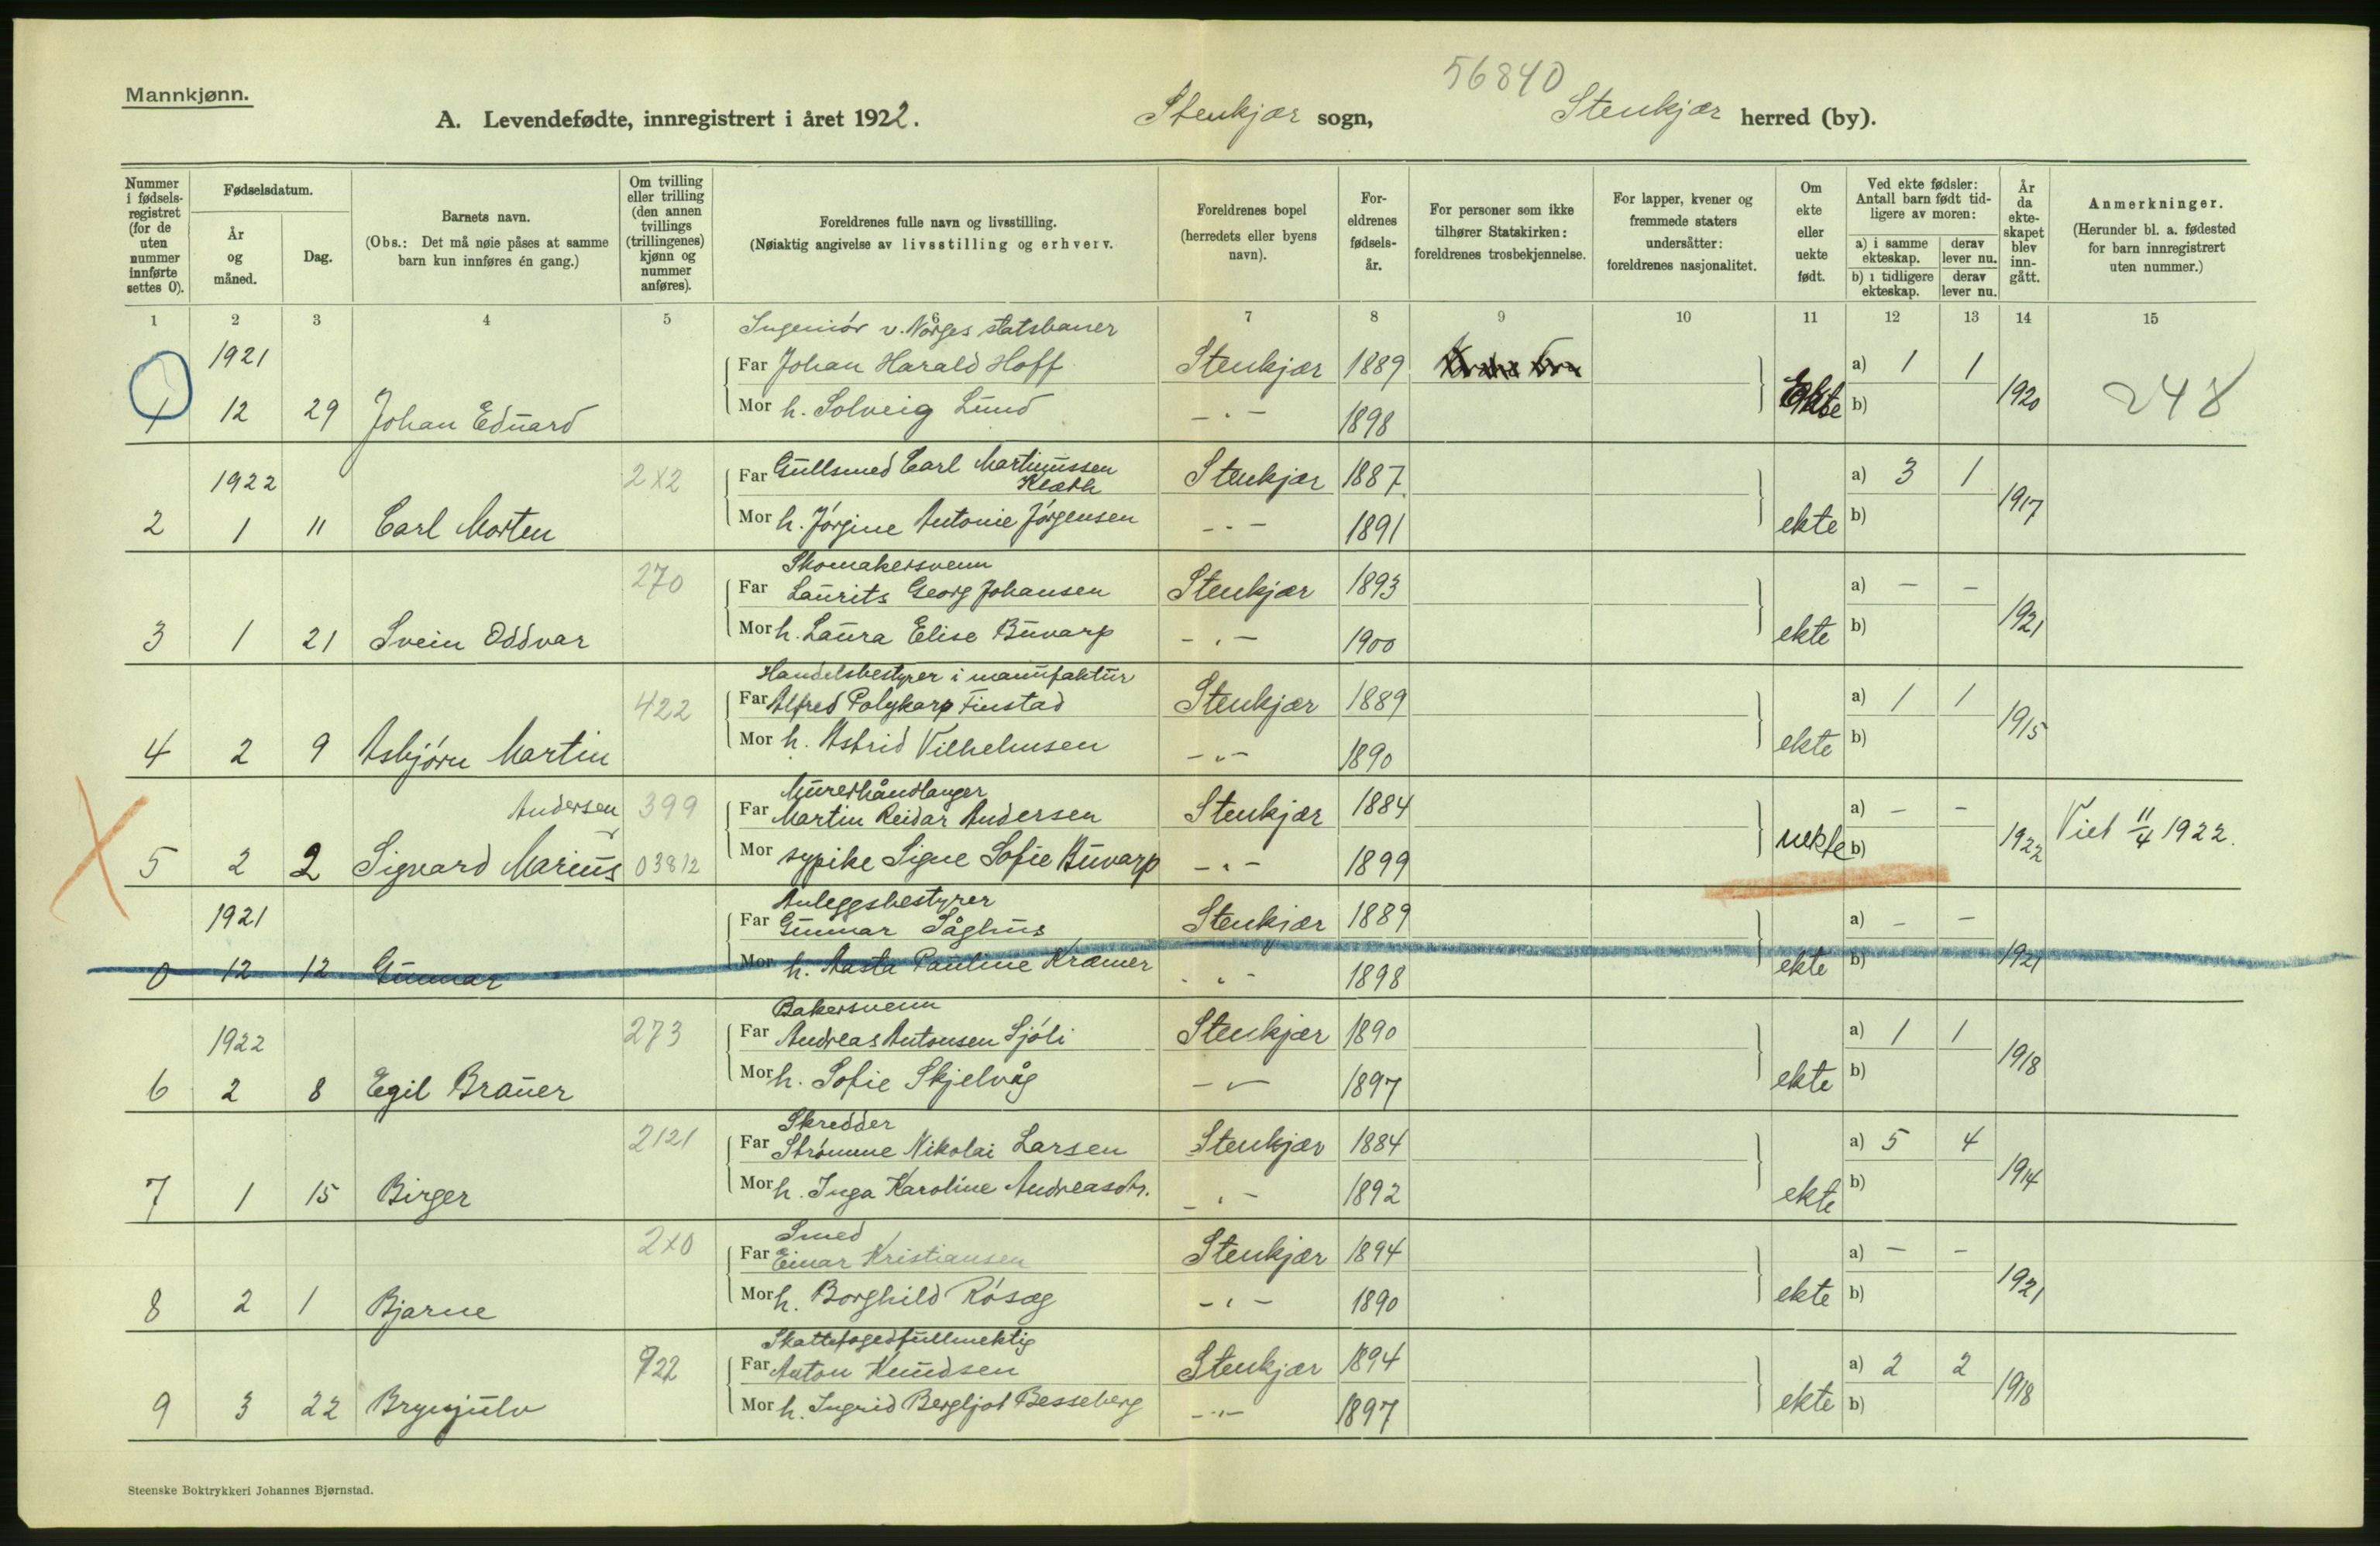 56840
Mannkjønn.
A. Levendefødte, innregistrert i året 1922. Stenkjær sogn, Stenkjær herred (by).
Nummer i fødselsregistret (for de uten nummer innførte settes 0).
Fødselsdatum.
År og måned.
Dag.
Barnets navn.
(Obs.: Det må nøie påses at samme barn kun innføres én gang.)
Om tvilling eller trilling (den annen tvillings (trillingenes) kjønn og nummer anføres).
Foreldrenes fulle navn og livsstilling.
(Nøiaktig angivelse av livsstilling og erhverv.
Foreldrenes bopel (herredets eller byens navn).
Foreldrenes fødselsår.
For personer som ikke tilhører Statskirken: foreldrenes trosbekjennelse.
For lapper, kvener og fremmede staters undersåtter: foreldrenes nasjonalitet.
Om ekte eller uekte født.
Ved ekte fødsler: Antall barn født tidligere av moren:
a) i samme ekteskap. derav lever nu.
b) i tidligere ekteskap. derav lever nu.
År da ekteskapet blev inngått.
Anmerkninger.
(Herunder bl. a. fødested for barn innregistrert uten nummer.)
1 2 3 4 5 6 7 8 9 10 11 12 13 14 15
Ingeniør v. Norges statsbaner
1921 Far Johan Harald Hoff Stenkjær 1889 a) 1 1
1 12 29 Johan Eduard Mor h. Solveig Lund - " - 1898 Ekte b) 1920 248
1922 2x2 Far Gullsmed Carl Martinussen Klæth Stenkjær 1887 a) 3 1
2 1 11 Carl Morten Mor h. Jørgine Antonie Jørgensen - " - 1891 ekte b) 1917
Skomakersvenn
270 Far Laurits Georg Johansen Stenkjær 1893 a) - -
3 1 21 Svein Oddvar Mor h. Laura Elise Buvarp - " - 1900 ekte b) 1921
Handelsbestyrer i manufaktur
422 Far Alfred Polykarp Finstad Stenkjær 1889 a) 1 1
4 2 9 Asbjørn Martin Mor h. Astrid Vilhelmsen - " - 1890 ekte b) 1915
Murerhåndlanger
Andersen 399 Far Martin Reidar Andersen Stenkjær 1884 a) - -
5 2 2 Sigvard Marius 03812 Mor sypike Signe Sofie Buvarp - " - 1899 uekte b) 1922 Viet 11/4 1922.
Anleggsbestyrer
1921 Far Gunnar Såghus Stenkjær 1889 a) - -
0 12 12 Gunnar Mor h. Aasta Pauline Kræmer - " - 1898 ekte b) 1921
Bakersvenn
1922 273 Far Andreas Antonsen Sjøli Stenkjær 1890 a) 1 1
6 2 8 Egil Brauer Mor h. Sofie Skjelvåg - " - 1897 ekte b) 1918
Skredder
2121 Far Strømme Nikolai Larsen Stenkjær 1884 a) 5 4
7 1 15 Birger Mor h. Inga Karoline Andreasdtr. - " - 1892 ekte b) 1914
Smed
2x0 Far Einar Kristiansen Stenkjær 1894 a) - -
8 2 1 Bjarne Mor h. Borghild Røsæg - " - 1890 ekte b) 1921
Skattefogedfullmektig
922 Far Anton Knudsen Stenkjær 1894 a) 2 2
9 3 22 Brynjulv Mor h. Ingrid Bergljot Besseberg - " - 1897 ekte b) 1918
Steenske Boktrykkeri Johannes Bjørnstad.